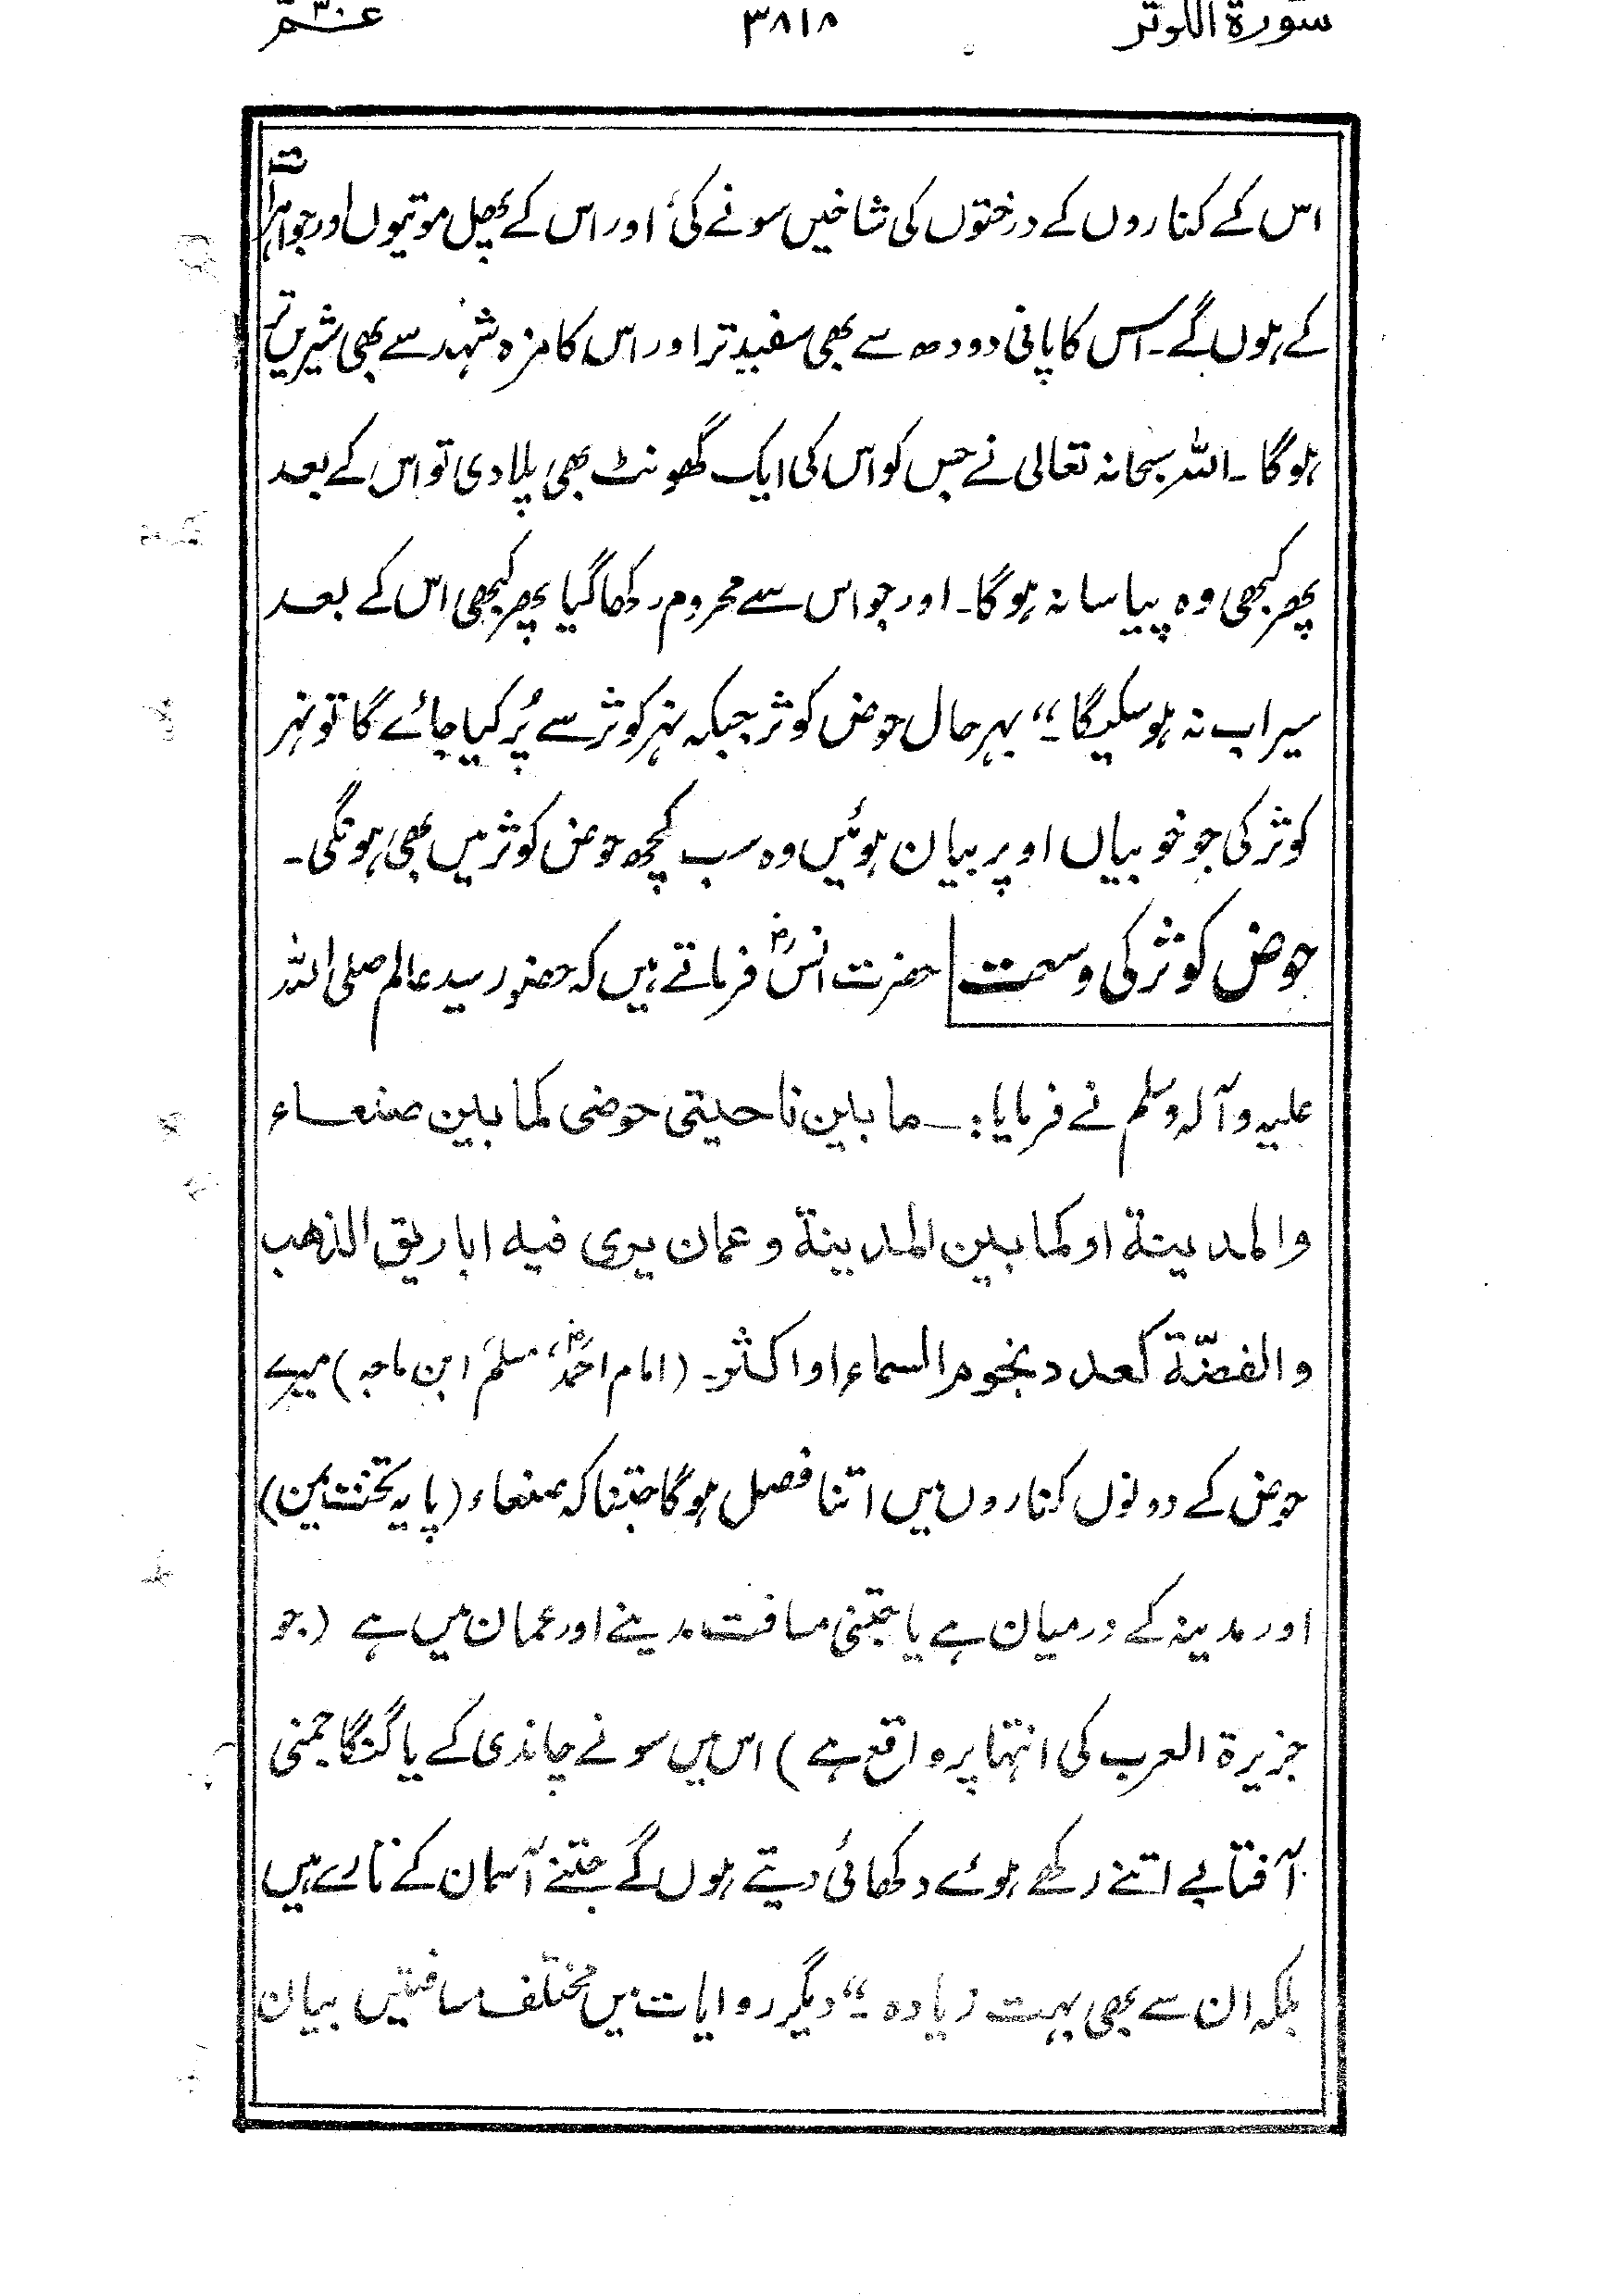 سورة الکوثر ۳۸۱۸ عـــم ۳۰
اس کے کناروں کے درختوں کی شاخیں سونے کی اور اس کے پھل موتیوں اور جواہرات
کے ہوں گے۔ اس کا پانی دودھ سے بھی سفید تر اور اس کا مزہ شہد سے بھی شیریں تر
ہوگا۔ اللہ سبحانہ تعالی نے جس کو اس کی ایک گھونٹ بھی پلا دی تو اس کے بعد
پھر کبھی وہ پیاسا نہ ہوگا۔ اور جو اس سے محروم رکھا گیا پھر کبھی اس کے بعد
سیراب نہ ہو سکیگا۔“ بہر حال حوض کوثر جبکہ نہر کوثر سے پُر کیا جائے گا تو نہر
کوثر کی جو خوبیاں اوپر بیان ہوئیں وہ سب کچھ حوض کوثر میں بھی ہونگی۔
حوض کوثر کی وسعت حضرت انسؓ فرماتے ہیں کہ حضور سید عالم صلی اللہ
علیہ وآلہ وسلم نے فرمایا:۔ ما بین ناحیتی حوضی کما بین صنعاء
والمدینة او کما بین المدینة وعمان یری فیه اباریق الذهب
والفضّة کعدد نجوم السماء او اکثر۔ (امام احمدؒ، مسلم، ابن ماجہ) میرے
حوض کے دونوں کناروں میں اتنا فصل ہوگا جتنا کہ صنعاء (پایہ تخت یمن)
اور مدینہ کے درمیان ہے یا جتنی مسافت مدینے اور عمان میں ہے (جو
جزیرة العرب کی انتہا پر واقع ہے) اس میں سونے چاندی کے یا گنگا جمنی
آفتابے اتنے رکھے ہوئے دکھائی دیتے ہوں گے جتنے آسمان کے تارے ہیں
بلکہ ان سے بھی بہت زیادہ۔“ دیگر روایات میں مختلف مسافتیں بیان